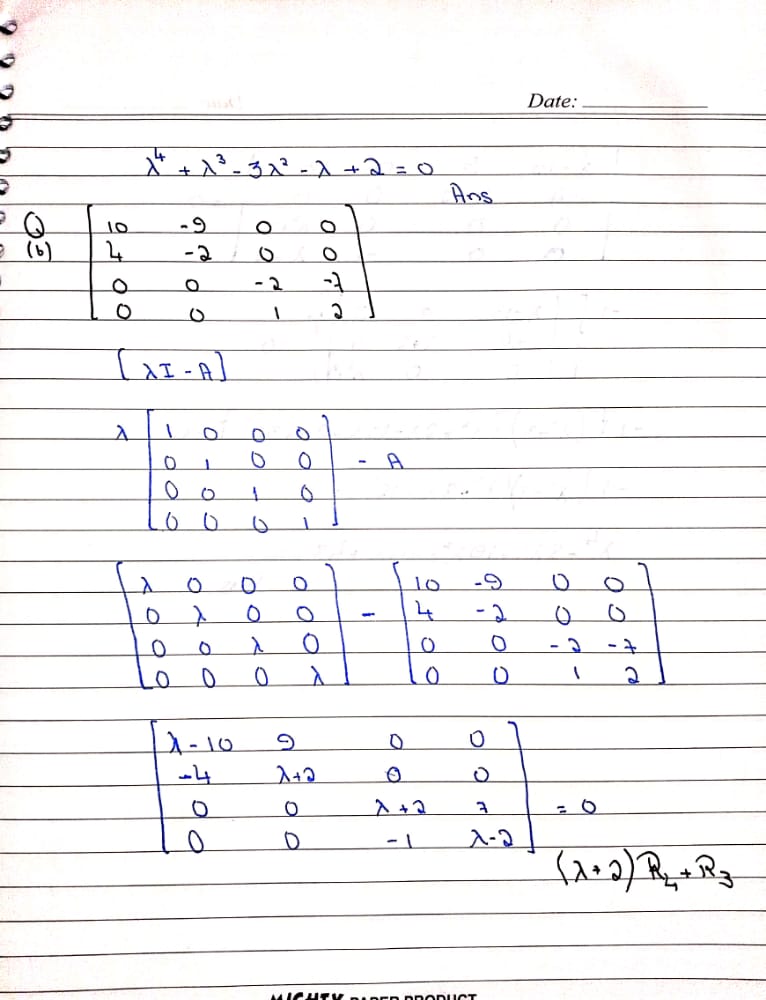 Date:
λ⁴ + λ³ - 3λ² - λ + 2 = 0
Ans
Q
(b)
10 -9 0 0
4 -2 0 0
0 0 -2 -7
0 0 1 2
[λI - A]
λ [1 0 0 0
0 1 0 0 - A
0 0 1 0
0 0 0 1]
[λ 0 0 0 [10 -9 0 0
0 λ 0 0 - 4 -2 0 0
0 0 λ 0 0 0 -2 -7
0 0 0 λ] 0 0 1 2]
[λ-10 9 0 0
-4 λ+2 0 0
0 0 λ+2 7 = 0
0 0 -1 λ-2]
(λ+2)R₄+R₃
MIGHTY PAPER PRODUCT